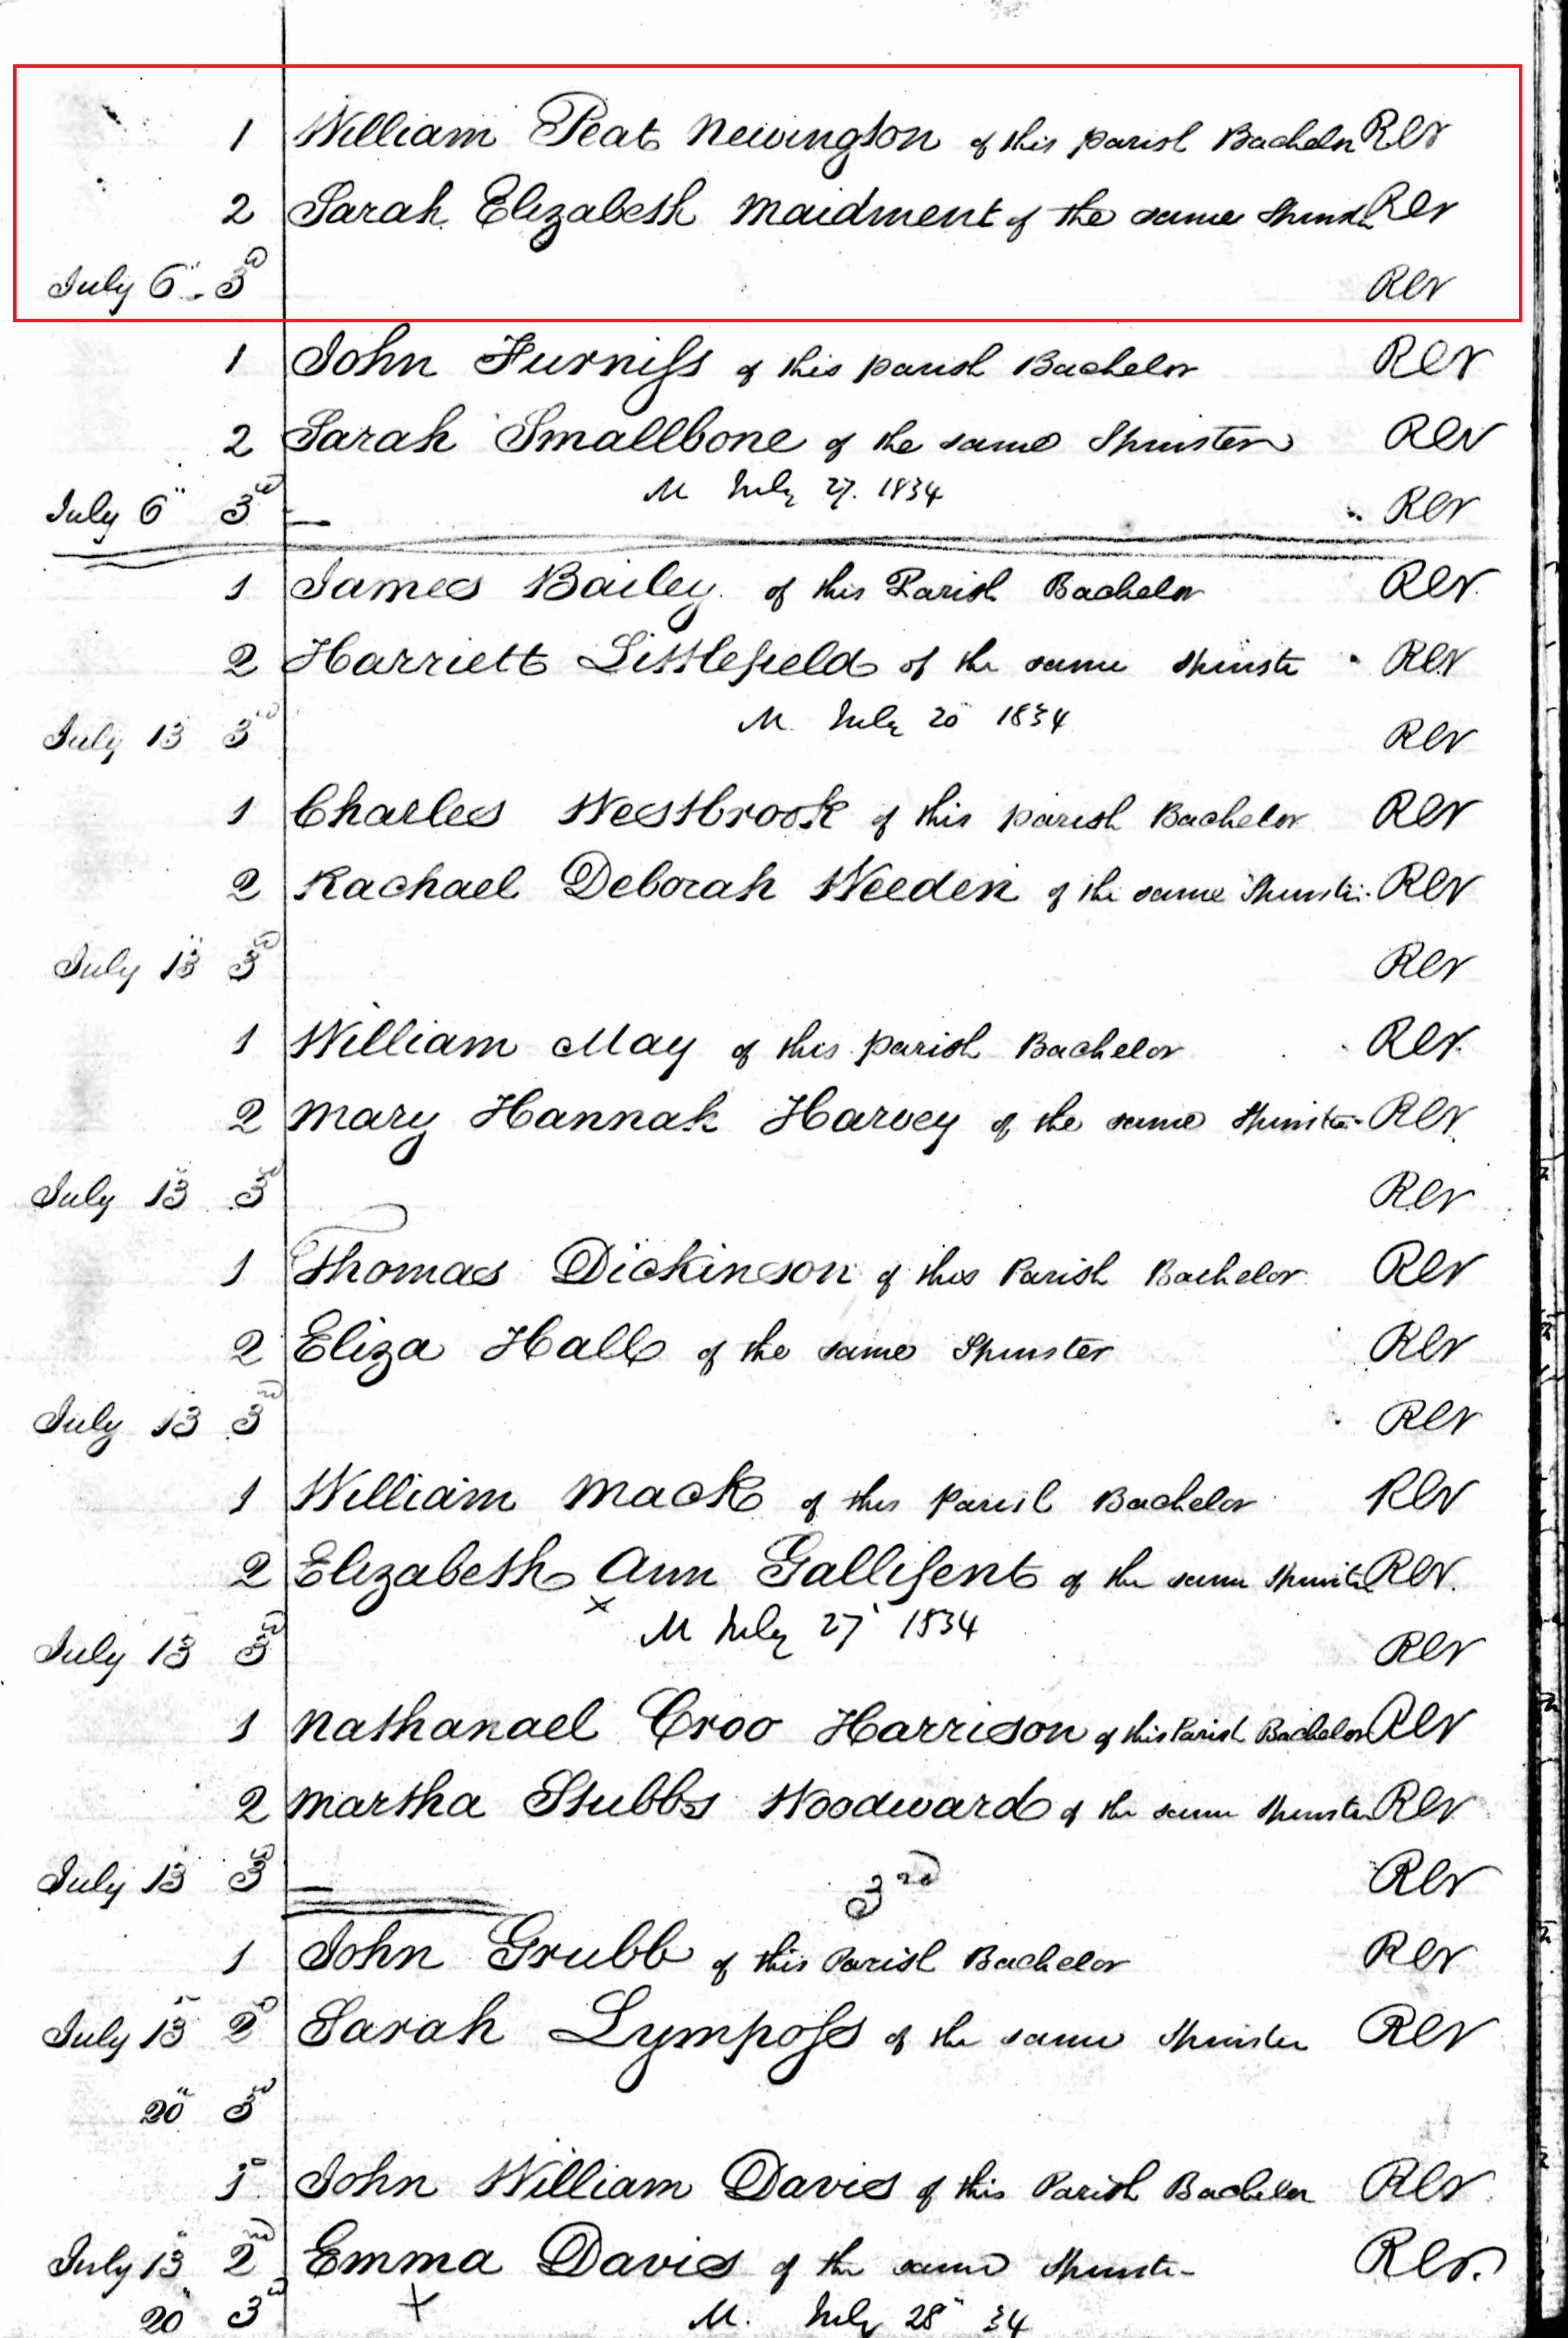 1 William Peat Newington of this parish Bachelor Rev
2 Sarah Elizabeth Maidment of the same Spinster Rev
July 6" 3d Rev
1 John Furniss of this parish Bachelor Rev
2 Sarah Smallbone of the same Spinster Rev
M July 27. 1834
July 6" 3d Rev
1 James Bailey of this Parish Bachelor Rev
2 Harriett Littlefield of the same Spinster Rev
M. July 20 1834
July 13 3d Rev
1 Charles Westbrook of this parish Bachelor Rev
2 Rachael Deborah Weeden of the same Spinster Rev
July 13" 3d Rev
1 William May of this parish Bachelor Rev
2 Mary Hannah Harvey of the same Spinster Rev
July 13 3d Rev
1 Thomas Dickinson of this Parish Bachelor Rev
2 Eliza Hall of the same Spinster Rev
July 13 3rd Rev
1 William Mack of this Parish Bachelor Rev
2 Elizabeth Ann Gallifent of the same Spinster Rev.
x
M July 27 1834
July 13 3d Rev
1 Nathanael Croo Harrison of this Parish Bachelor Rev
2 Martha Stubbs Woodward of the same Spinster Rev
July 13 3d 3rd Rev
1 John Grubb of this Parish Bachelor Rev
July 13 2d Sarah Lymposs of the same Spinster Rev
20" 3d
1 John William Davis of this Parish Bachelor Rev.
July 13" 2nd Emma Davis of the same Spinster Rev.
20 3d x M. July 28" 34